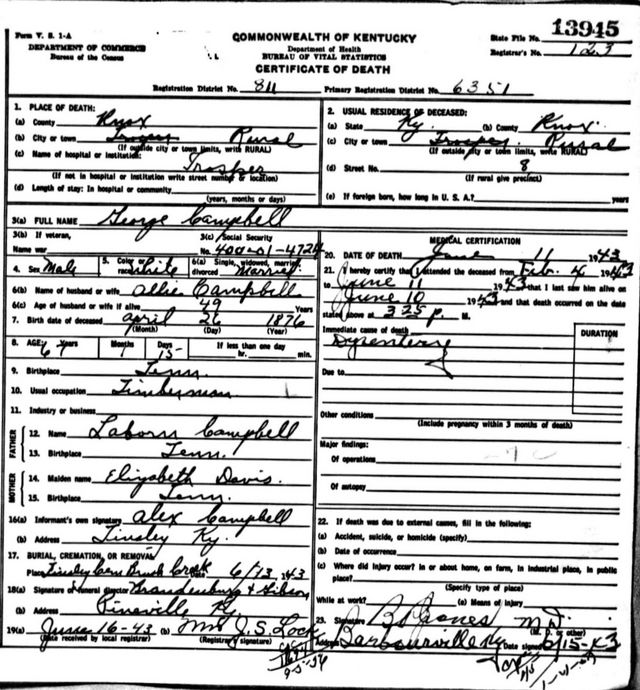 Form V. S. 1-A
DEPARTMENT OF COMMERCE
Bureau of the Census
COMMONWEALTH OF KENTUCKY
Department of Health
BUREAU OF VITAL STATISTICS
CERTIFICATE OF DEATH
State File No. 13945
Registrar's No. 123
Registration District No. 811 Primary Registration District No. 6351
1. PLACE OF DEATH:
(a) County Knox
(b) City or town Trosper Rural
(If outside city or town limits, write RURAL)
(c) Name of hospital or institution:
Trosper
(If not in hospital or institution write street number or location)
(d) Length of stay: In hospital or community
(years, months or days)
2. USUAL RESIDENCE OF DECEASED:
(a) State Ky. (b) County Knox.
(c) City or town Trosper Rural
(If outside city or town limits, write RURAL)
(d) Street No. 8
(If rural give precinct)
(e) If foreign born, how long in U. S. A.? years
3(a) FULL NAME George Campbell
3(b) If veteran,
Name war
3(c) Social Security
No. 400-01-4724
4. Sex Male 5. Color or race White 6(a) Single, widowed, married, divorced Married
6(b) Name of husband or wife Allie Campbell
6(c) Age of husband or wife if alive 49 Years
7. Birth date of deceased April 26 1876
(Month) (Day) (Year)
8. AGE: 67 Years Months 1 Days 15 If less than one day
hr. min.
9. Birthplace Tenn.
10. Usual occupation Timberman
11. Industry or business
FATHER
12. Name Laborn Campbell
13. Birthplace Tenn.
MOTHER
14. Maiden name Elizabeth Davis.
15. Birthplace Tenn.
16(a) Informant's own signature Alex Campbell
(b) Address Tinsley Ky.
17. BURIAL, CREMATION, OR REMOVAL
Place Tinsley Cem Brush Creek Date 6/13 1943
18(a) Signature of funeral director Brandenburg & Gibson
(b) Address Pineville Ky.
19(a) June 16-43 (b) Mrs J. S. Lock
(Date received by local registrar) (Registrar's signature)
MEDICAL CERTIFICATION
20. DATE OF DEATH June 11 1943
21. I hereby certify that I attended the deceased from Feb. 4 1943
to June 11 1943 that I last saw him alive on
June 10 1943 and that death occurred on the date
stated above at 3 25 P. M.
Immediate cause of death
DURATION
Dysentery
Due to
Other conditions
(Include pregnancy within 3 months of death)
Major findings:
Of operations
Of autopsy
22. If death was due to external causes, fill in the following:
(a) Accident, suicide, or homicide (specify)
(b) Date of occurrence
(c) Where did injury occur? In or about home, on farm, in industrial place, in public
place?
(Specify type of place)
While at work? (e) Means of injury
23. Signature B P Jones M D.
(M. D. or other)
Address Barbourville Ky Date signed 6/15-43